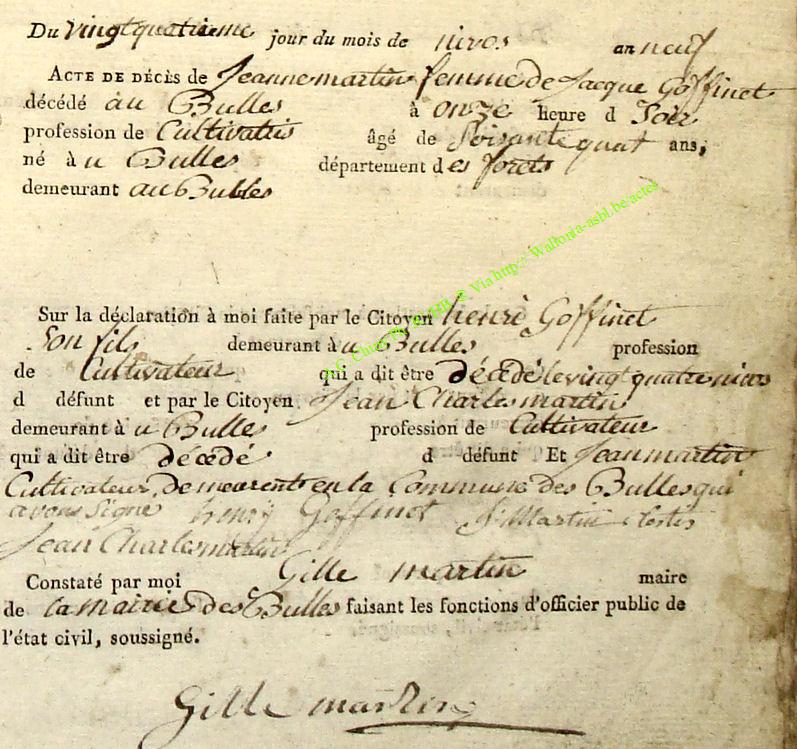 Du vingtquatrieme jour du mois de nivos an neuf
ACTE DE DÉCÈS de Jeanne martin femme de Jacque Goffinet
décédé au Bulles à onze heure d Soir
profession de Cultivatris âgé de Soisante quat ans,
né à u Bulles département des forets
demeurant au Bulles
Sur la déclaration à moi faite par le Citoyen henri Goffinet
Son fils demeurant à u Bulles profession
de Cultivateur qui a dit être décédé le vingt quatre nivos
d défunt et par le Citoyen Jean Charles martin
demeurant à u Bulles profession de Cultivateur
qui a dit être décedé d défunt Et Jean martin
Cultivateur demeurent en la Commune des Bulles qui
avons Signe henry Goffinet J Martin
Jean Charles martin
Constaté par moi Gille martin maire
de la mairie des Bulles faisant les fonctions d'officier public de
l'état civil, soussigné.
Gille martin
Via http:// Wallonia-asbl.be/actes